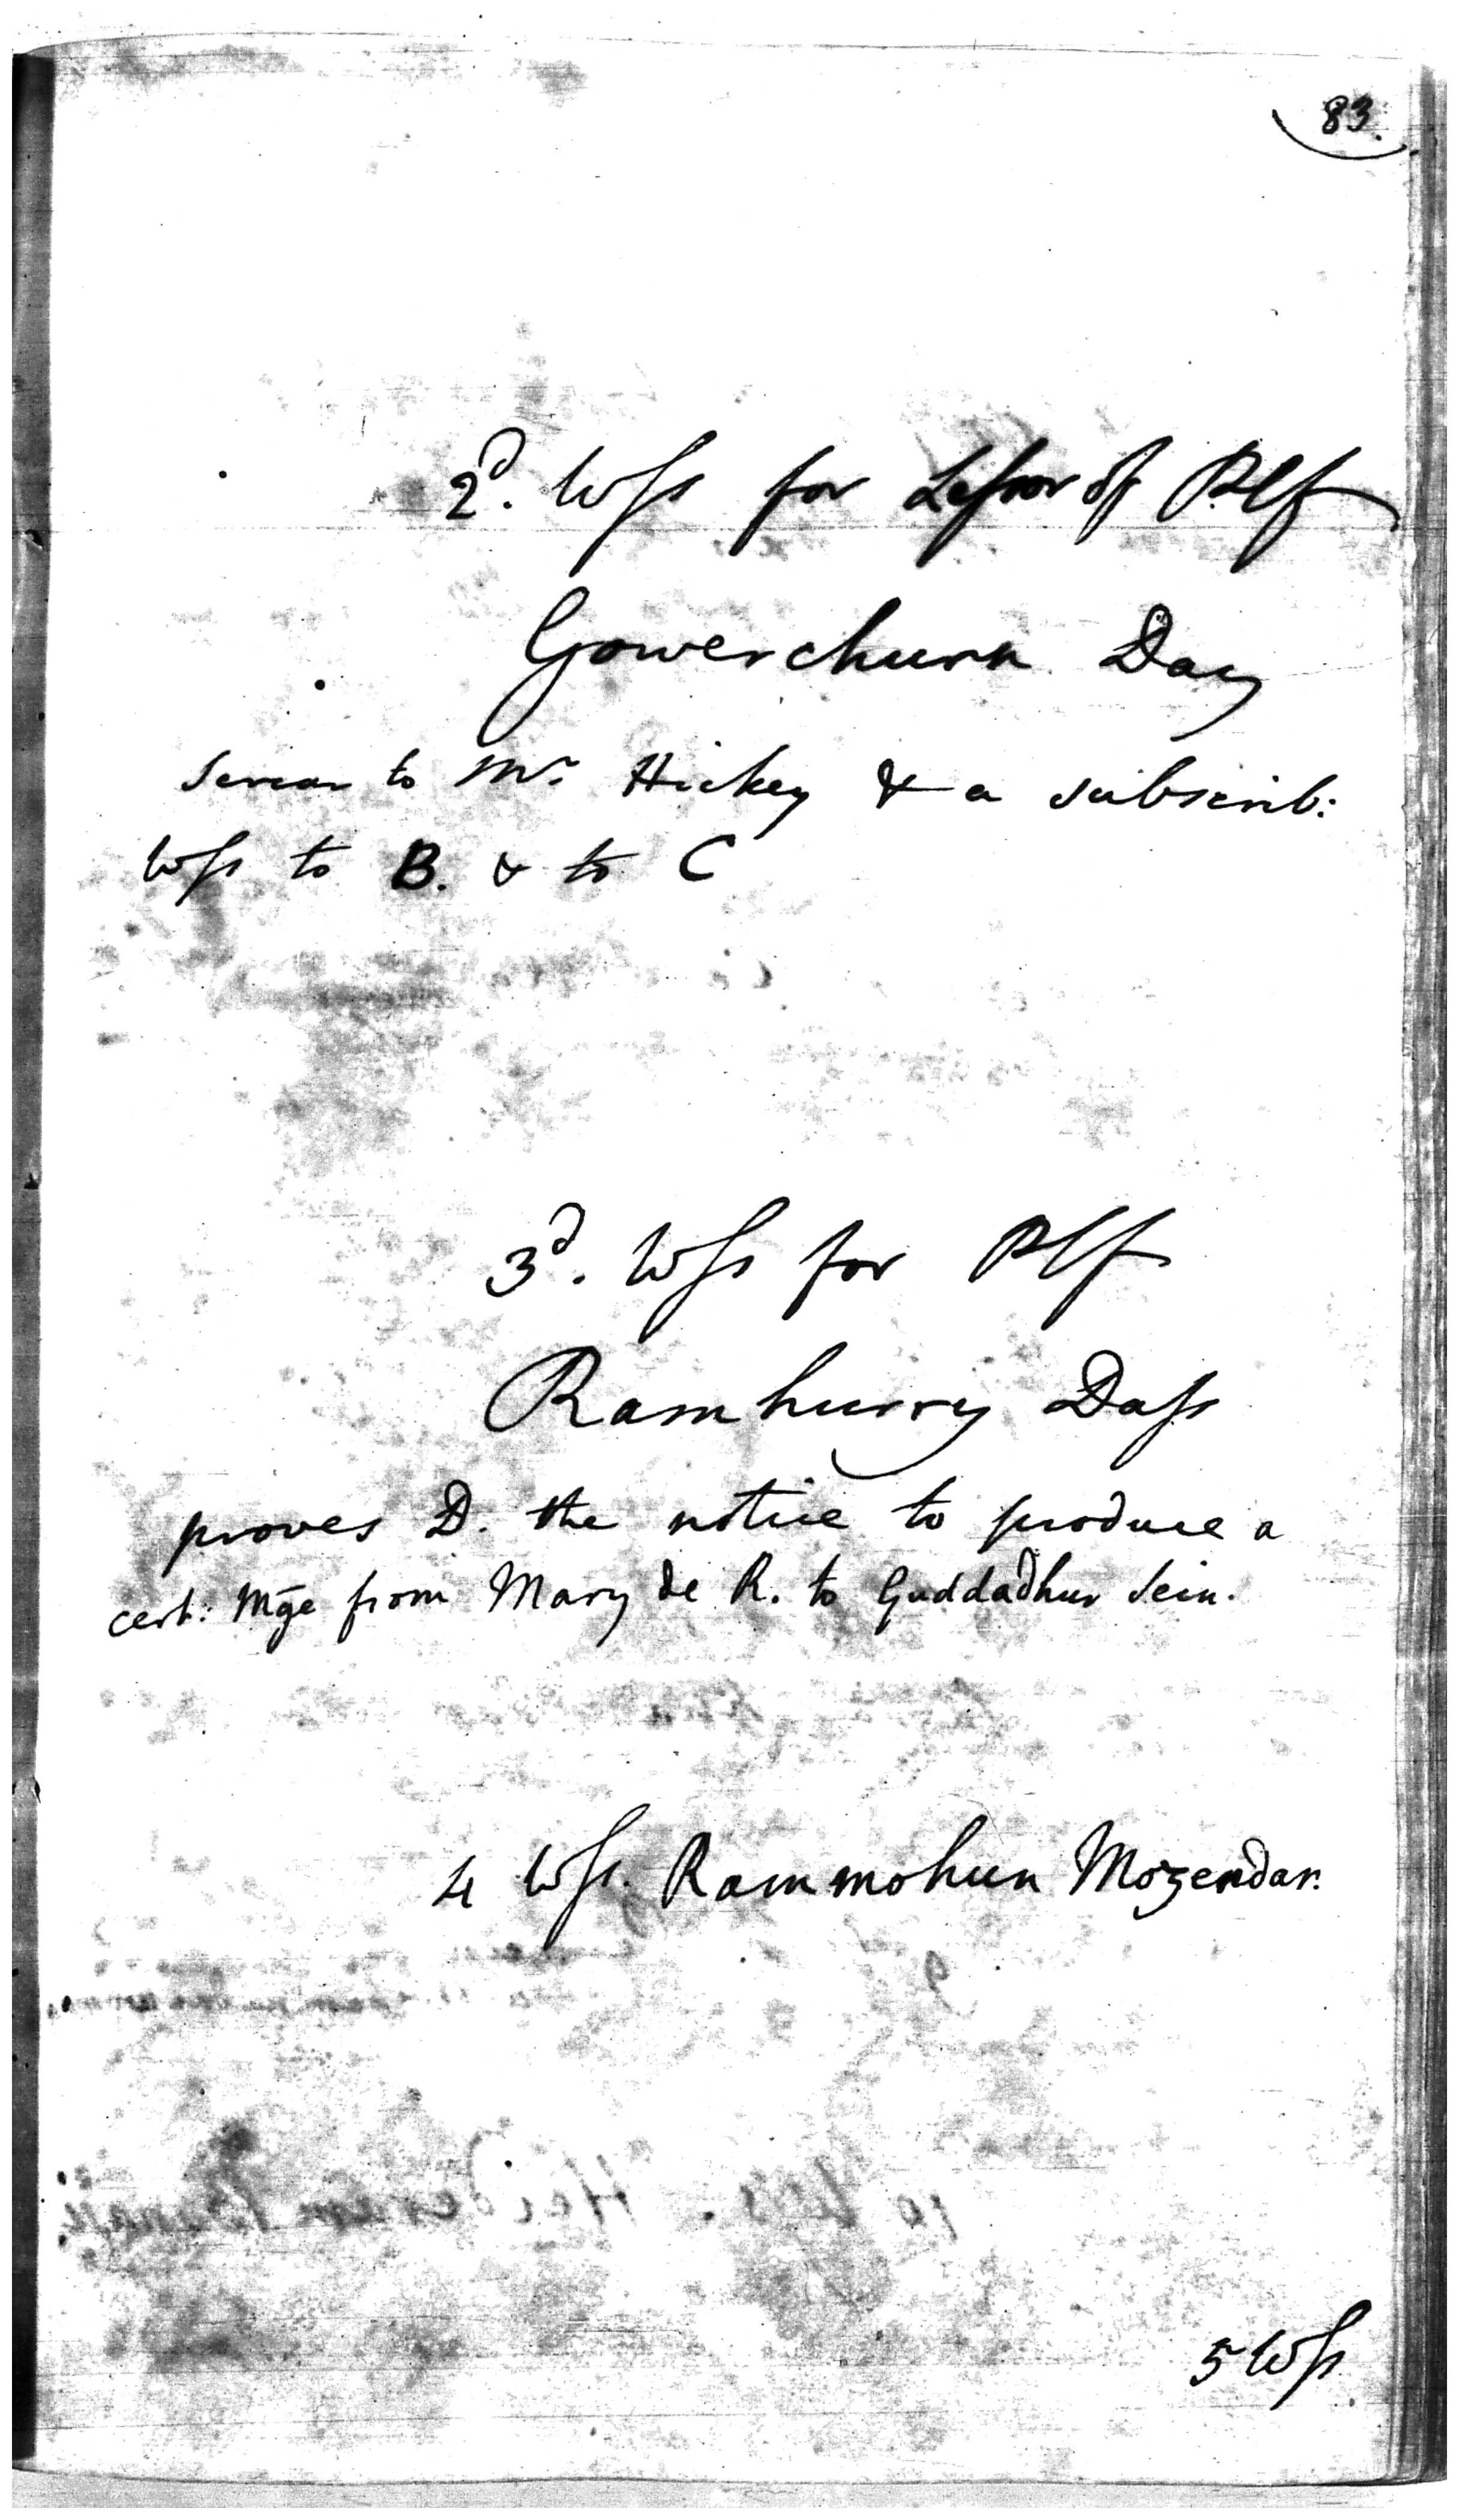 83.
2d. Wss for Lessor of Plf
Gowerchurn Day
Sircar to Mr. Hickey & a subscrib:
Wss to B. & to C
3d. Wss for Plf
Ramhurry Dass
proves D. the notice to produce a
cert: Mge from Mary de R. to Guddadhur Sein.
4 Wss. Rammohun Mozendar.
5 Wss